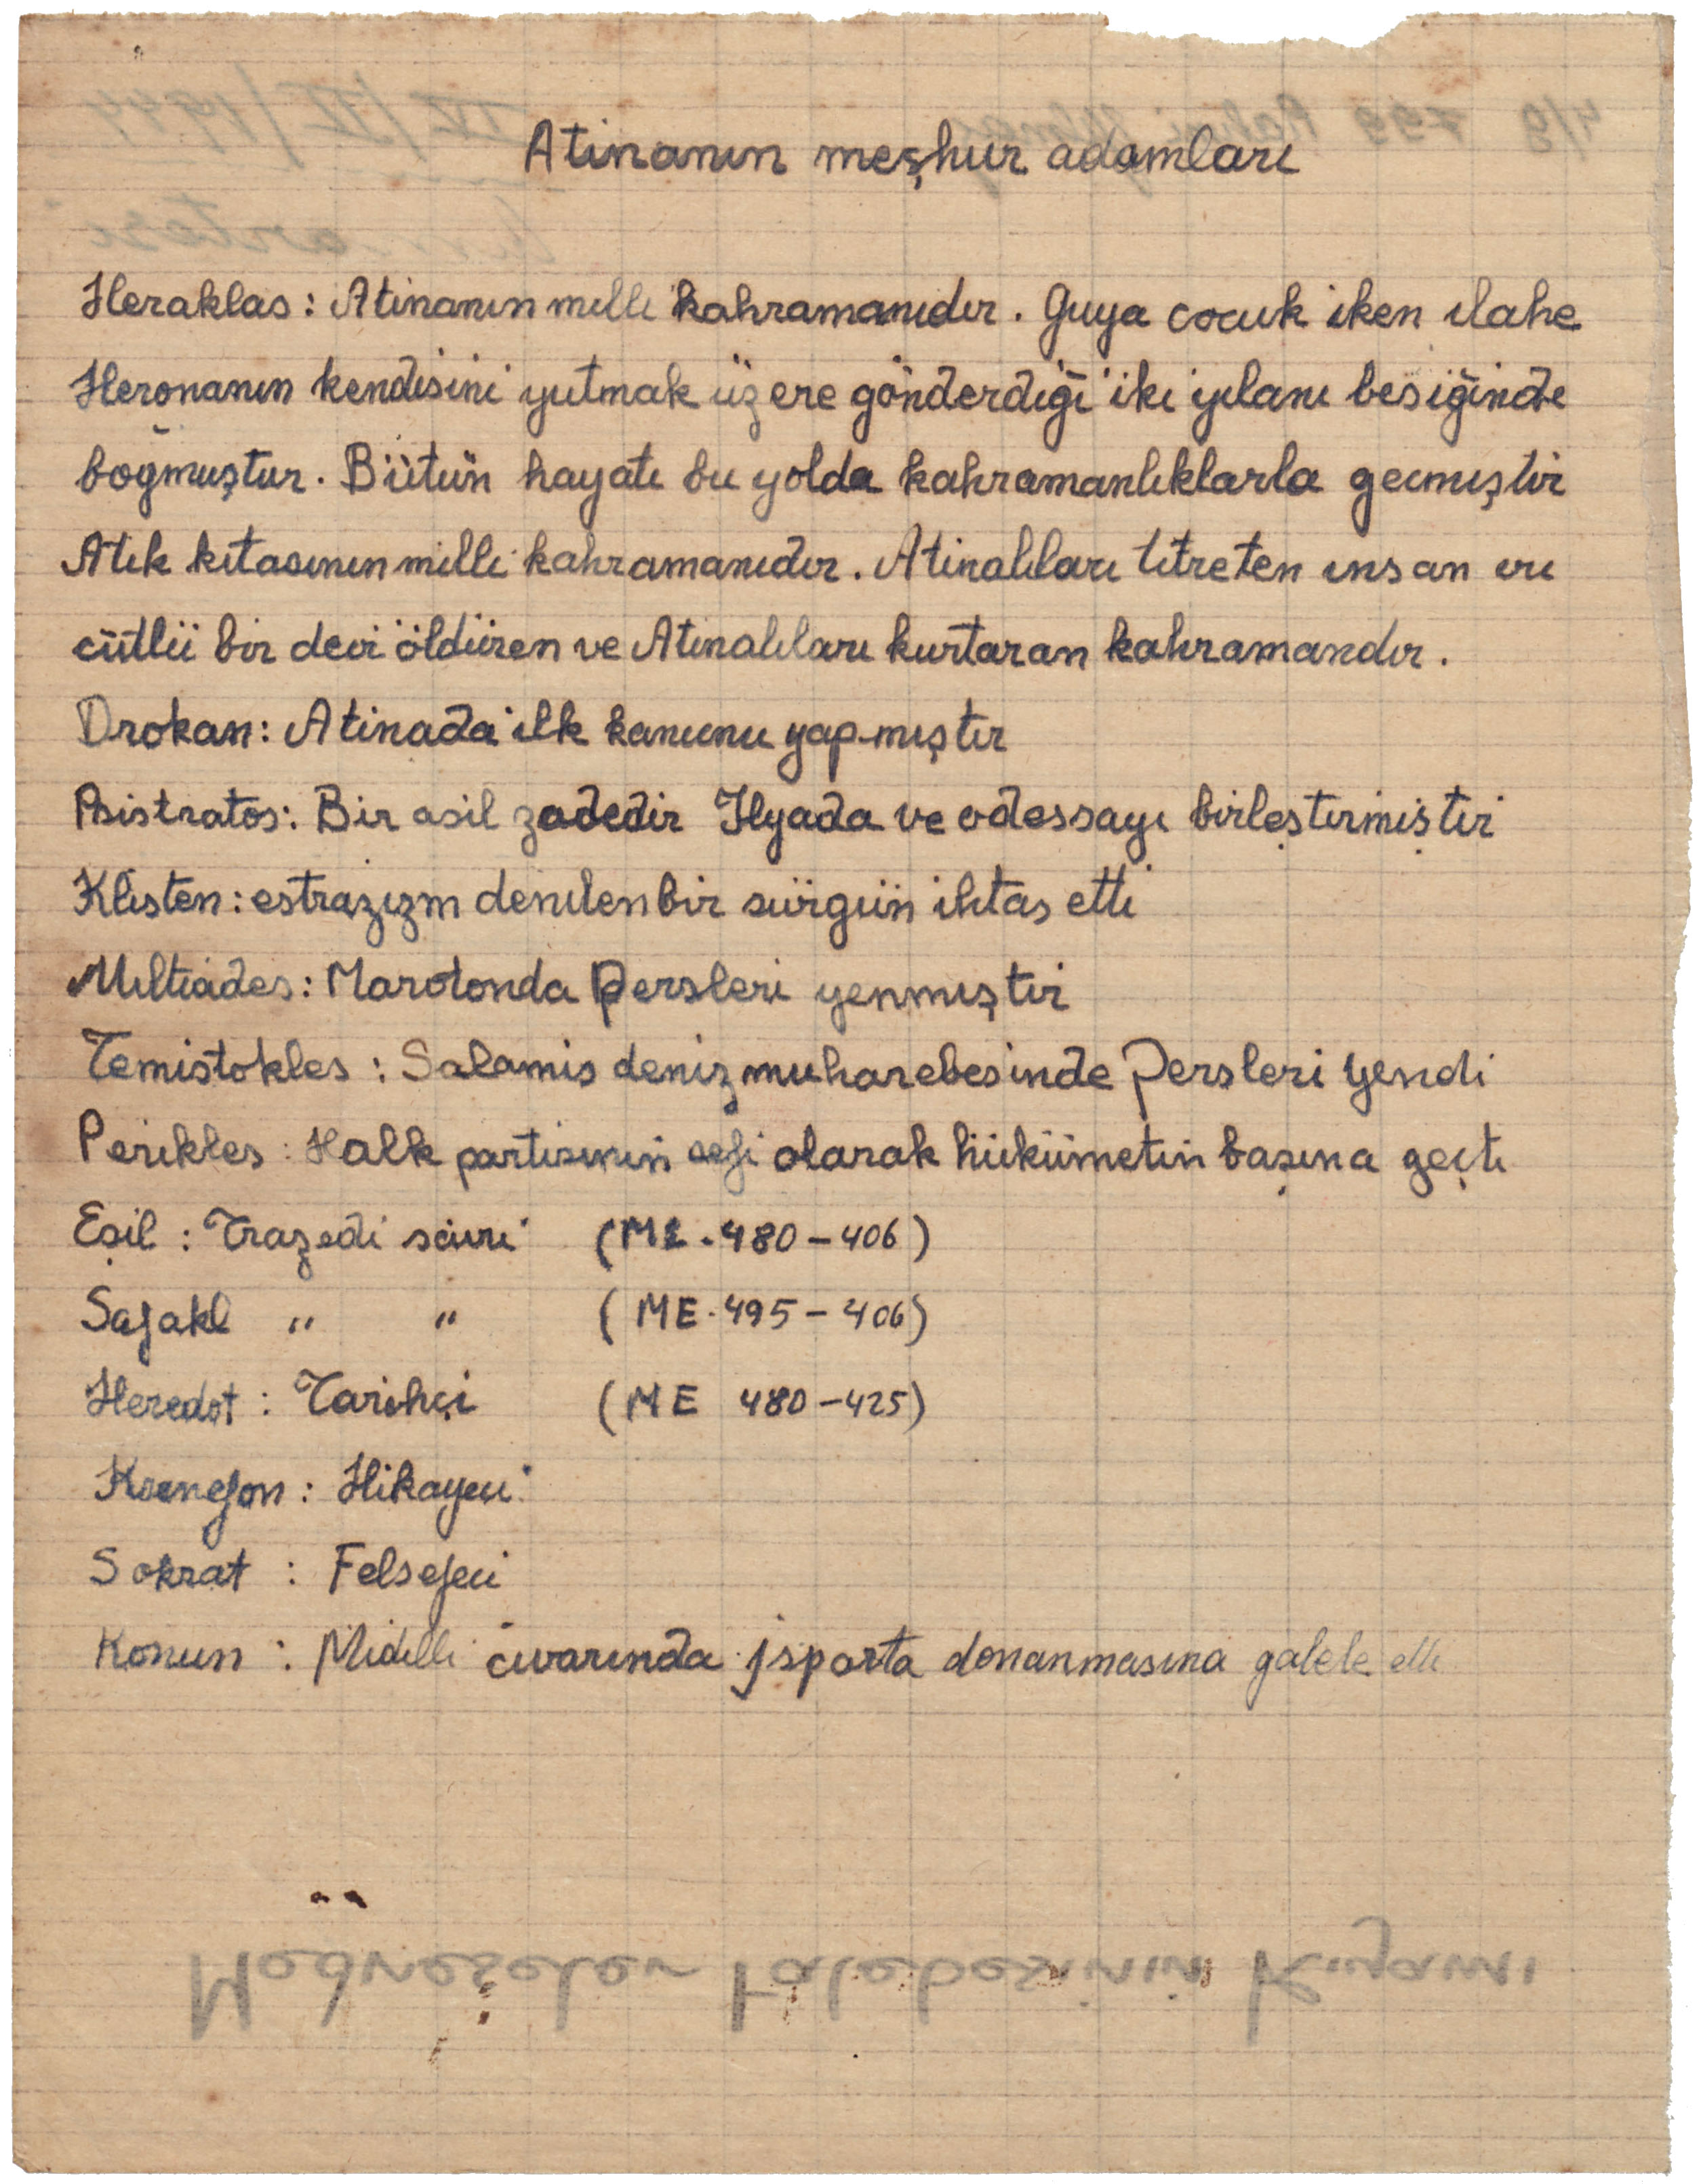 Atinanın meşhur adamları
Heraklas: Atinanın milli kahramanıdır. Guya cocuk iken ilahe
Heronanın kendisini yutmak üzere gönderdiği iki yılanı besiğinde
boğmuştur. Bütün hayatı bu yolda kahramanlıklarla gecmiştir
Atik kıtasının milli kahramanıdır. Atinalıları titreten insan vü
cütlü bir devi öldüren ve Atinalıları kurtaran kahramandır.
Drokan: Atinada ilk kanunu yapmıştır
Psistratos: Bir asil zadedir Ilyada ve odessayı birleştirmiştir
Klisten: estrazizm denilen bir sürgün ihtas etti
Miltiades: Marotonda Persleri yenmiştir
Temistokles: Salamis deniz muharebesinde Persleri yendi
Perikles: Halk partisinin sefi olarak hükümetin başına geçti
Eşil: Trazedi sairi (ME. 480-406)
Safakl " " (ME. 495-406)
Heredot: Tarihçi (ME 480-425)
Ksenefon: Hikayeci
Sokrat: Felsefeci
Konun: Midilli civarında Jsparta donanmasına galebe etti
Medreseler talebesinin Kıyamı